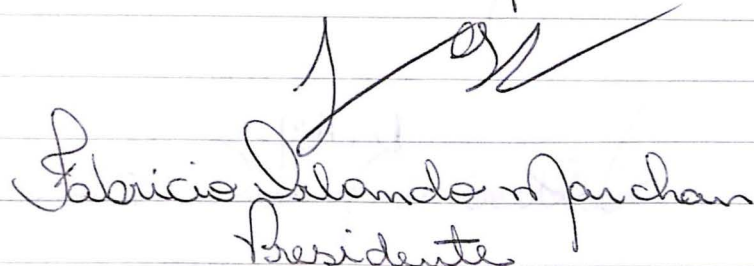 Fabricio Orlando Marchan
Presidente